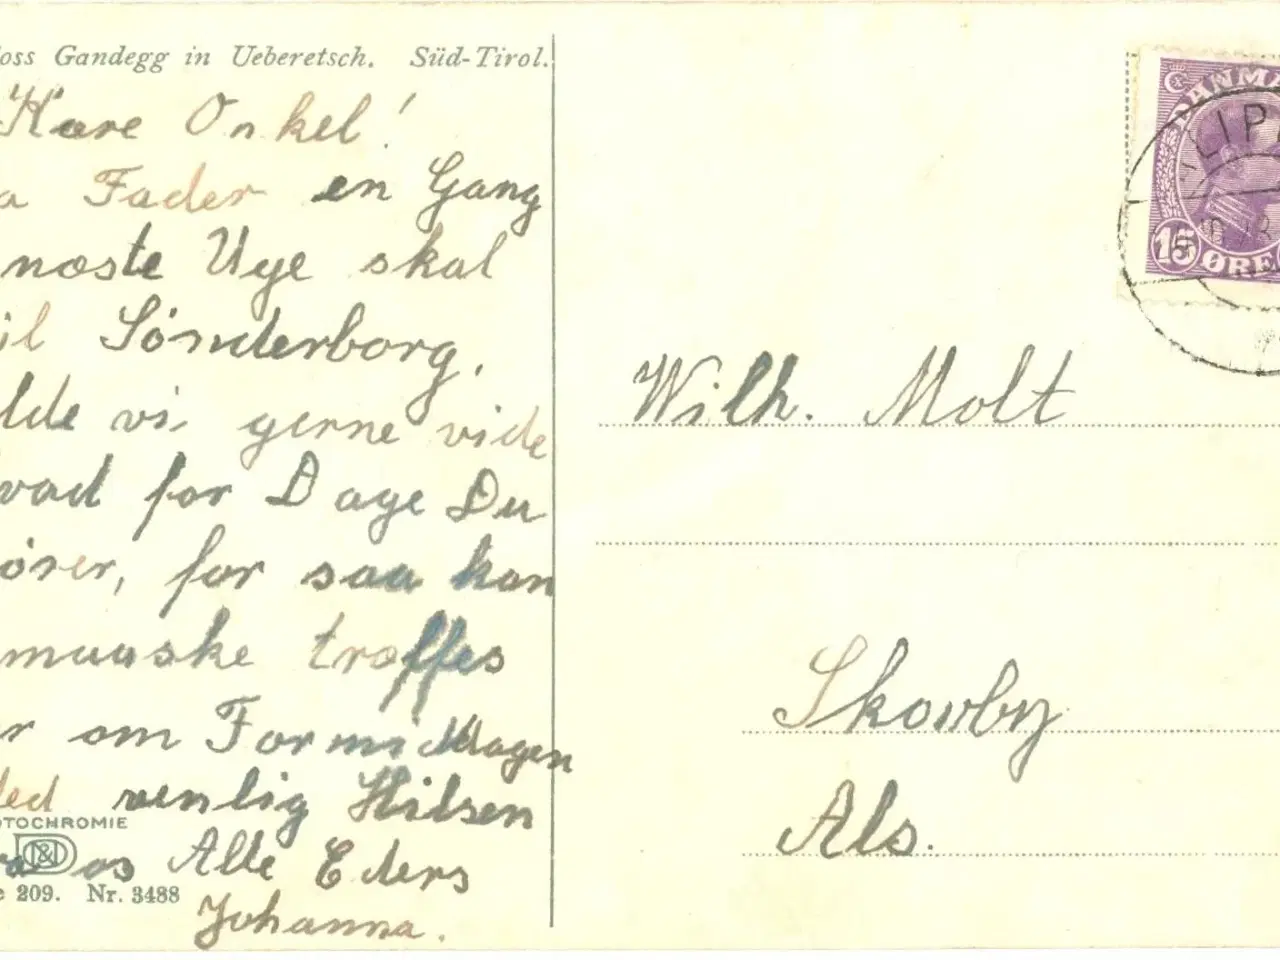 loss Gandegg in Ueberetsch. Süd-Tirol.
Kære Onkel!
a Fader en Gang
næste Uge skal
il Sönderborg,
lde vi gerne vide
vad for Dage Du
örer, for saa kan
maaske træffes
r om Formiddagen
led venlig Hilsen
ra os Alle Eders
Johanna.
OTOCHROMIE
e 209. Nr. 3488
DANMA
LIP
15 ØRE
Wilh. Molt
Skovby
Als.